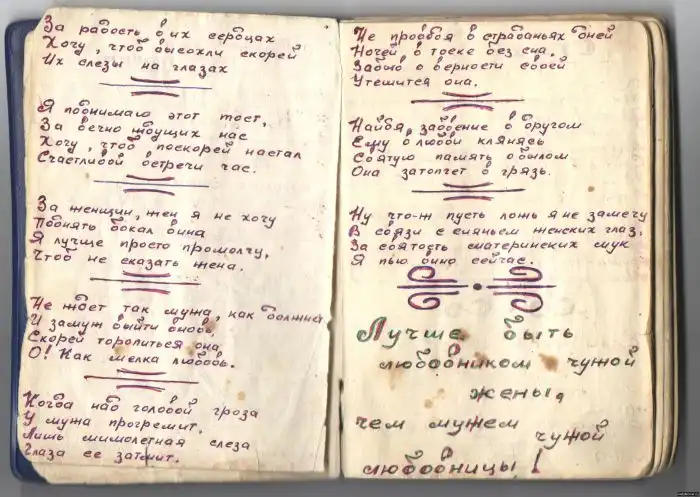 За радость в их сердцах
Хочу, чтоб высохли скорей
Их слезы на глазах
Я поднимаю этот тост,
За вечно ждущих нас
Хочу, чтоб поскорей настал
Счастливой встречи час.
За женщин, жен я не хочу
Поднять бокал вина
Я лучше просто промолчу,
Чтоб не сказать жена.
Не ждет так мужа, как должна
И замуж выйти вновь,
Скорей торопиться она
О! Как мелка любовь.
Когда над головой гроза
У мужа прогремит.
Лишь мимолетная слеза
Глаза ее затмит.
Не проведя в страданьях дней
Ночей в тоске без сна.
Забыв о верности своей
Утешится она.
Найдя, забвение в другом
Ему о любви клянясь
Святую память о былом
Она затопчет в грязь.
Ну что-ж пусть ложь я не замечу
В связи с сияньем женских глаз.
За святость материнских мук
Я пью вино сейчас.
Лучше быть
любовником чужой
жены,
чем мужем
чужой
любовницы!